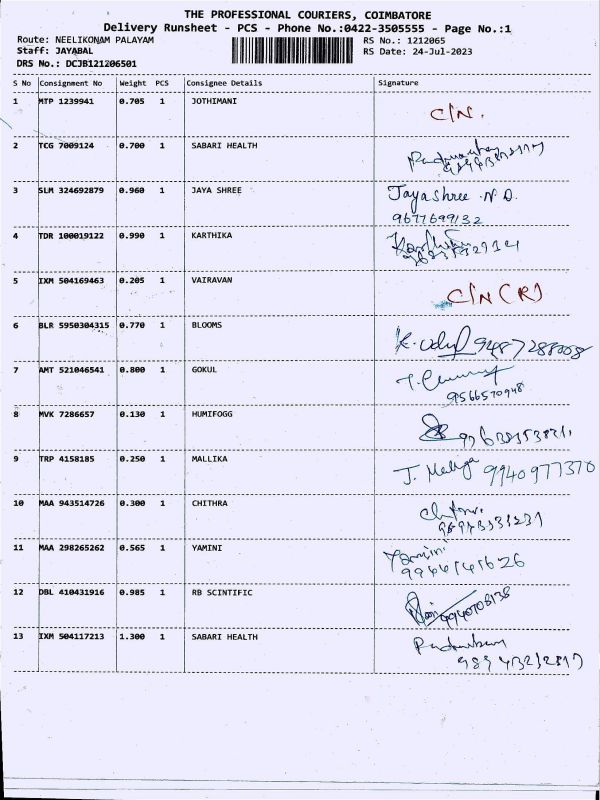 THE PROFESSIONAL COURIERS, COIMBATORE
Delivery Runsheet - PCS - Phone No.:0422-3505555 - Page No.:1
Route: NEELIKONAM PALAYAM RS No.: 1212065
Staff: JAYABAL RS Date: 24-Jul-2023
DRS No.: DCJB121206501
S No Consignment No Weight PCS Consignee Details Signature
1 MTP 1239941 0.705 1 JOTHIMANI C/N.
2 TCG 7009124 0.700 1 SABARI HEALTH
3 SLM 324692879 0.960 1 JAYA SHREE Jayashree .N.D.
9677699132
4 TDR 100019122 0.990 1 KARTHIKA
5 IXM 504169463 0.205 1 VAIRAVAN C/N (R)
6 BLR 5950304315 0.770 1 BLOOMS 9487288008
7 AMT 521046541 0.800 1 GOKUL
9566570948
8 MVK 7286657 0.130 1 HUMIFOGG
9 TRP 4158185 0.250 1 MALLIKA 9940977370
10 MAA 943514726 0.300 1 CHITHRA
11 MAA 298265262 0.565 1 YAMINI Yamini
12 DBL 410431916 0.985 1 RB SCINTIFIC
13 IXM 504117213 1.300 1 SABARI HEALTH